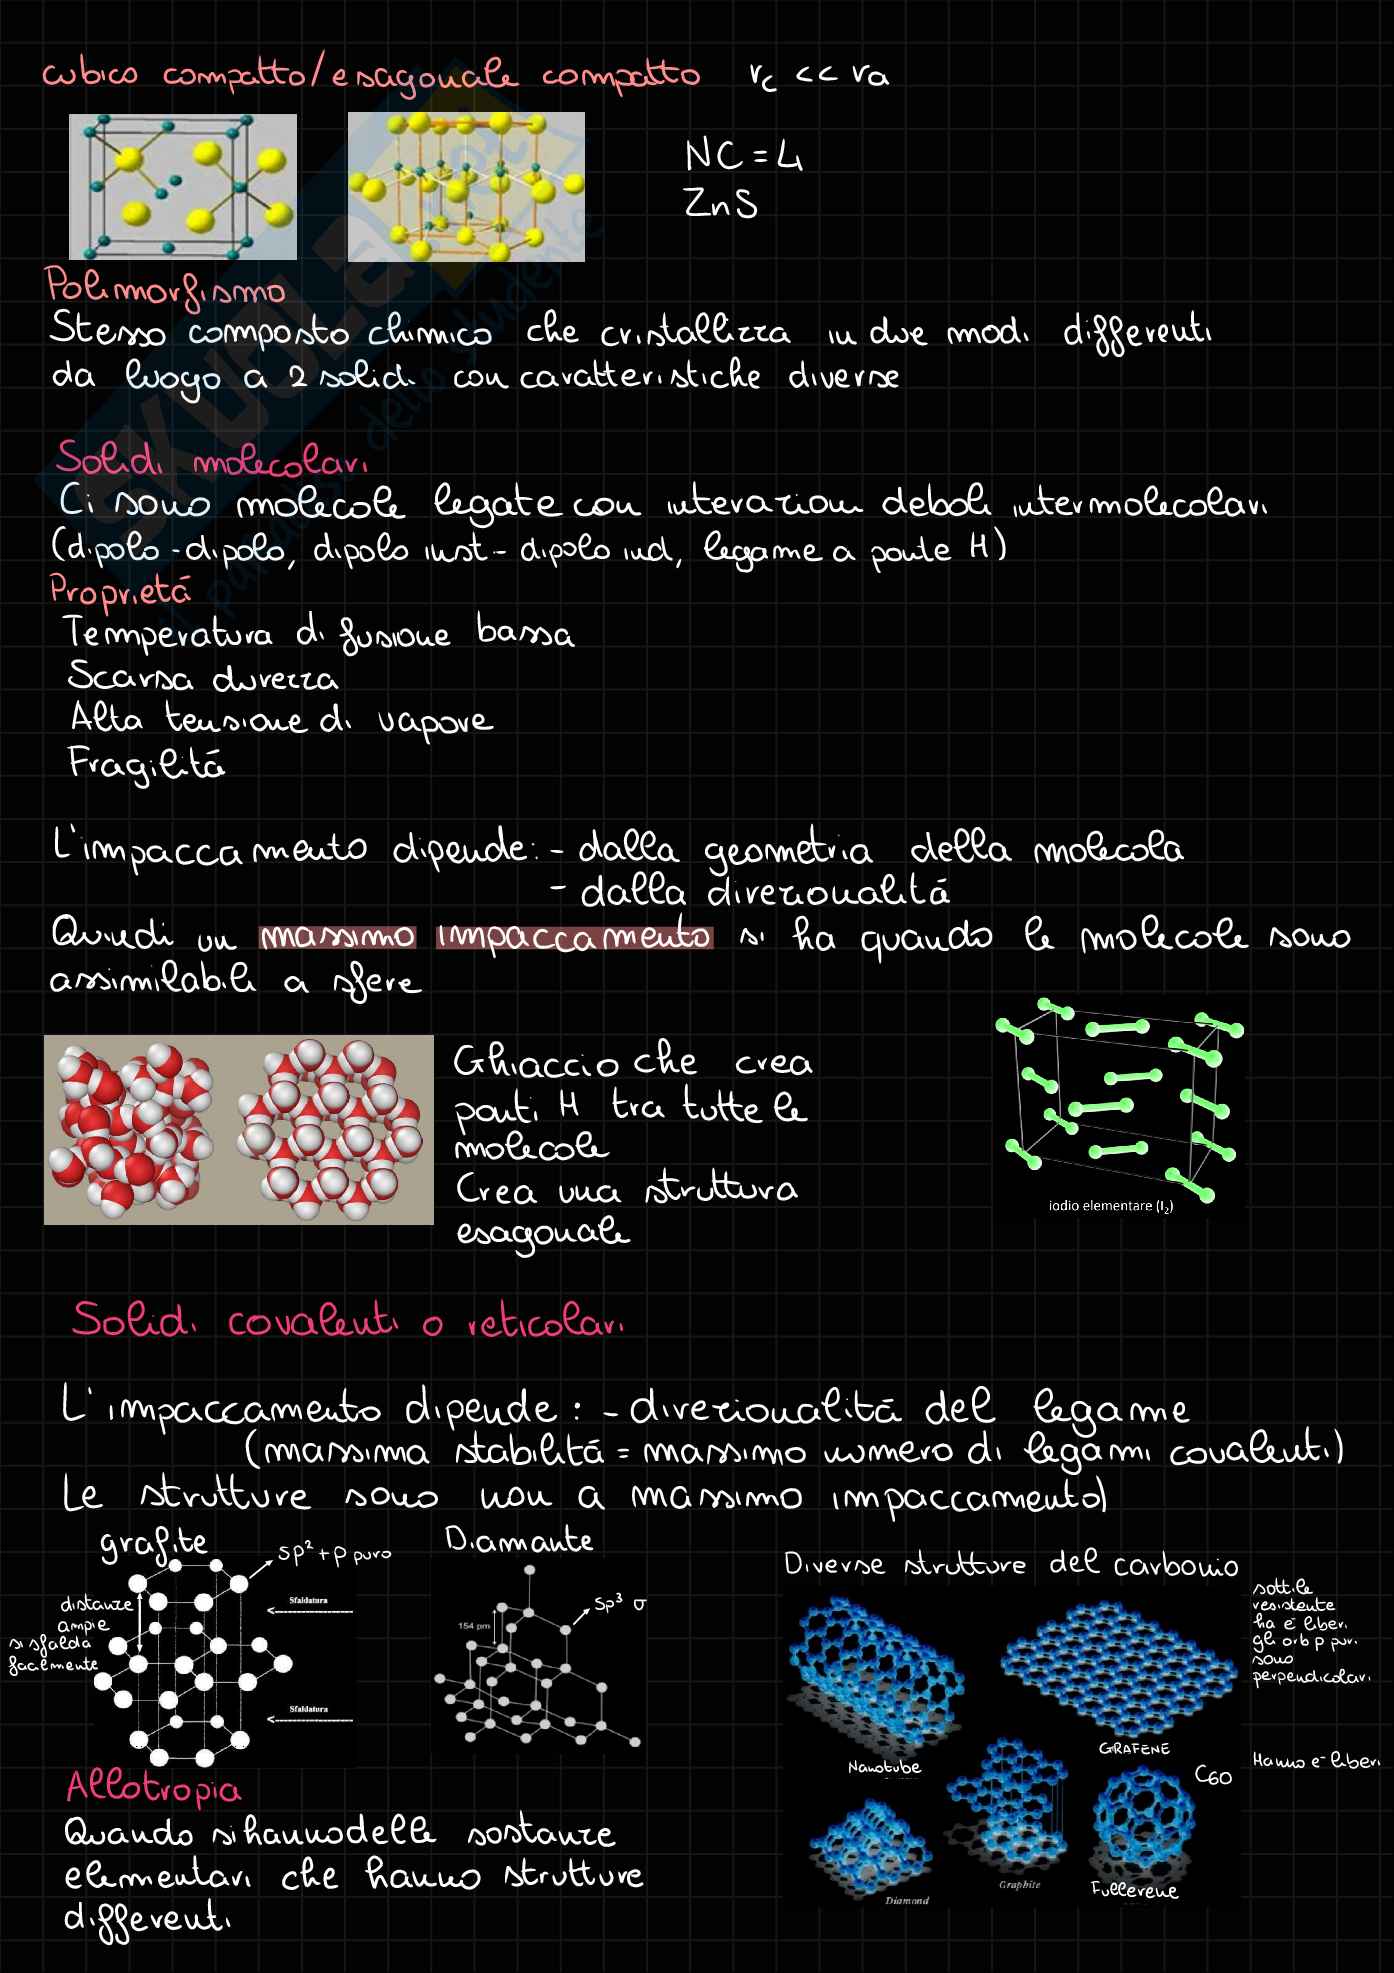 cubico compatto/esagonale compatto rc << ra
NC = 4
ZnS
Polimorfismo
Stesso composto chimico che cristallizza in due modi differenti
da luogo a 2 solidi con caratteristiche diverse
Solidi molecolari
Ci sono molecole legate con interazioni deboli intermolecolari
(dipolo-dipolo, dipolo inst-dipolo ind, legame a ponte H)
Proprietá
Temperatura di fusione bassa
Scarsa durezza
Alta tensione di vapore
Fragilitá
L'impaccamento dipende: - dalla geometria della molecola
- dalla direzionalitá
Quindi un massimo impaccamento si ha quando le molecole sono
assimilabili a sfere
Ghiaccio che crea
ponti H tra tutte le
molecole
Crea una struttura
esagonale
iodio elementare (I₂)
Solidi covalenti o reticolari
L'impaccamento dipende: - direzionalitá del legame
(massima stabilitá = massimo numero di legami covalenti)
Le strutture sono non a massimo impaccamento
grafite
sp² + p puro
distanze
ampie
si sfalda
facilmente
Sfaldatura
Sfaldatura
Diamante
sp³ σ
154 pm
Diverse strutture del carbonio
sottile
resistente
ha e⁻ liberi
gli orb p puri
sono
perpendicolari
Nanotube
GRAFENE
C60
Hanno e⁻ liberi
Diamond
Graphite
Fullerene
Allotropia
Quando si hanno delle sostanze
elementari che hanno strutture
differenti
SKUOLA
della studente